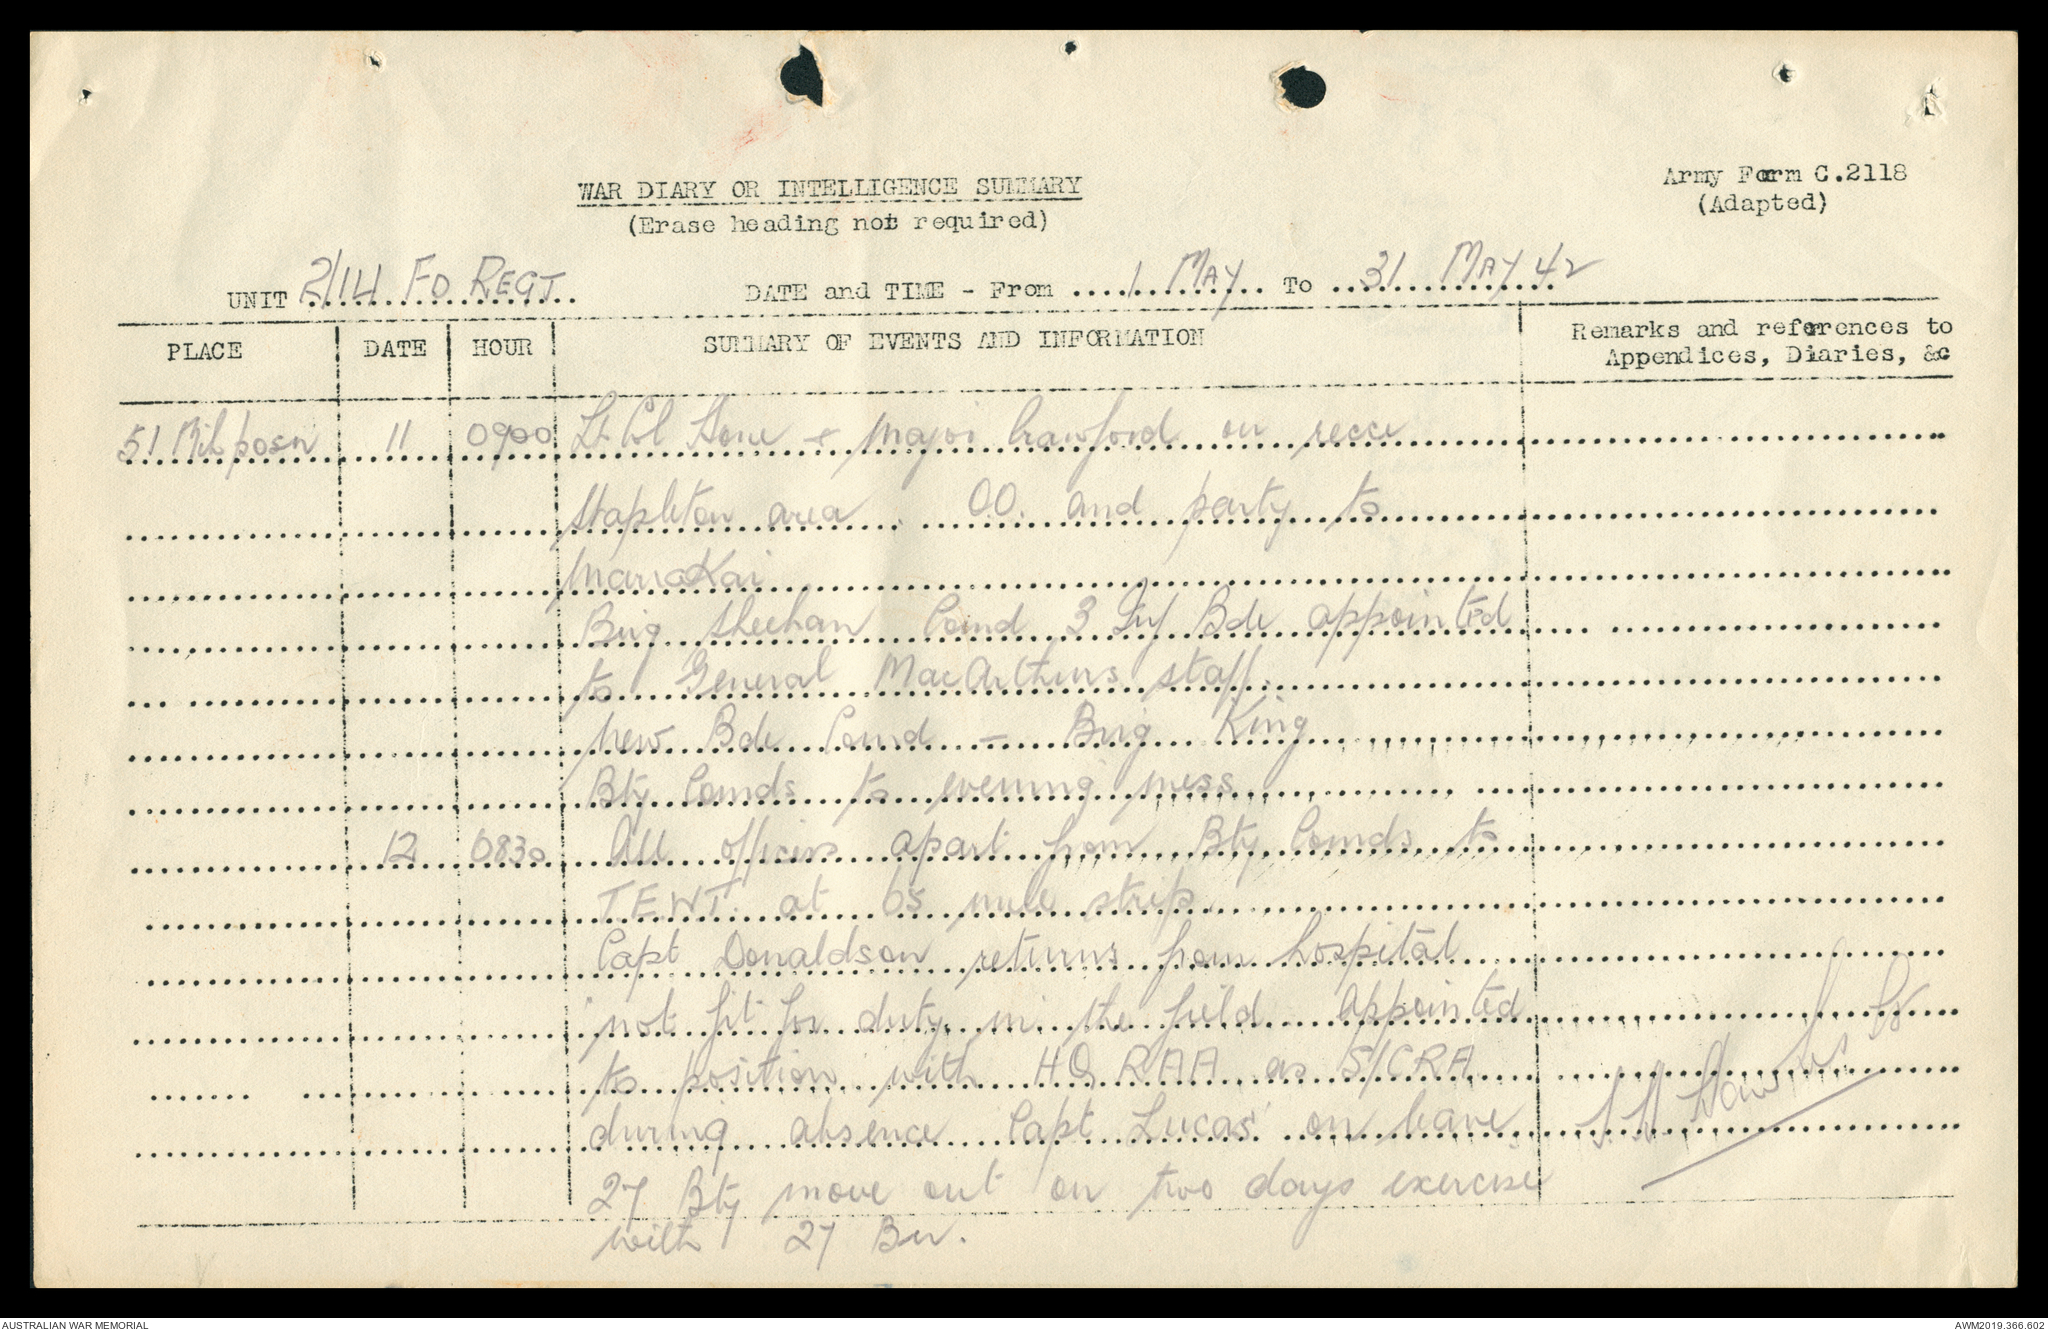 WAR DIARY OR INTELLIGENCE SUMMARY
(Erase heading not required)
Army Form C.2118
(Adapted)
UNIT 2/14 FD REGT
DATE and TIME - From 1 MAY To 31 MAY 42
PLACE DATE HOUR SUMMARY OF EVENTS AND INFORMATION Remarks and references to
Appendices, Diaries, &c
51 Mil posn 11 0900 Lt Col Hone & Major Crawford on recce
Stapleton area. O.O. and party to
Manakai
Brig Sheehan Comd 3 Inf Bde appointed
to General MacArthurs staff.
New Bde Comd - Brig King
Bty Comds to evening mess
12 0830 All officers apart from Bty Comds to
T.E.W.T. at 65 mile strip
Capt Donaldson returns from hospital
not fit for duty in the field. Appointed
to position with HQ RAA as S/CRA
during absence Capt Lucas' on leave.
27 Bty move out on two days exercise
with 27 Bn.
AUSTRALIAN WAR MEMORIAL
AWM2019.366.602